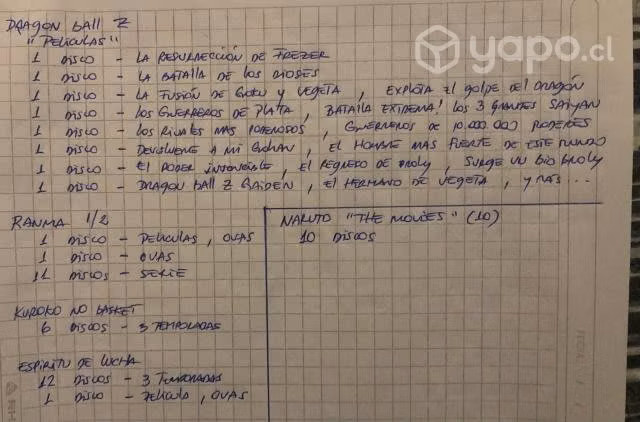 DRAGON BALL Z
"PELICULAS"
yapo.cl
1 DISCO - LA RESURRECCIÓN DE FREZER
1 DISCO - LA BATALLA DE LOS DIOSES
1 DISCO - LA FUSIÓN DE GOKU Y VEGETA, EXPLOTA EL GOLPE DEL DRAGÓN
1 DISCO - LOS GUERREROS DE PLATA, BATALLA EXTREMA! LOS 3 GRANDES SAIYAN
1 DISCO - LOS RIVALES MAS PODEROSOS, GUERREROS DE 10.000.000 PODERES
1 DISCO - DEVUELVEME A MI GOHAN, EL HOMBRE MAS FUERTE DE ESTE MUNDO
1 DISCO - EL PODER INVENCIBLE, EL REGRESO DE BROLY, SURGE UN BIO BROLY
1 DISCO - DRAGON BALL Z GAIDEN, EL HERMANO DE VEGETA, Y MAS...
RANMA 1/2
1 DISCO - PELICULAS, OVAS
1 DISCO - OVAS
11 DISCOS - SERIE
KUROKO NO BASKET
6 DISCOS - 3 TEMPORADAS
ESPIRITU DE LUCHA
12 DISCOS - 3 TEMPORADAS
1 DISCO - PELICULA, OVAS
NARUTO "THE MOVIES" (10)
10 DISCOS